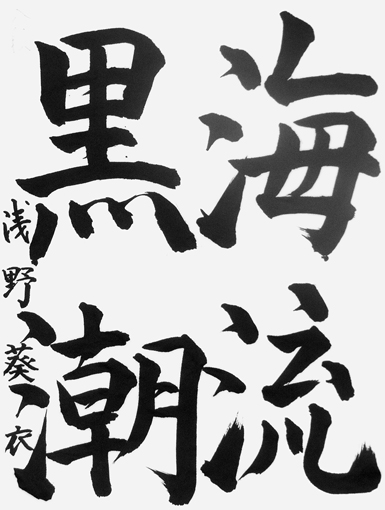 海流
黒潮
浅野葵衣